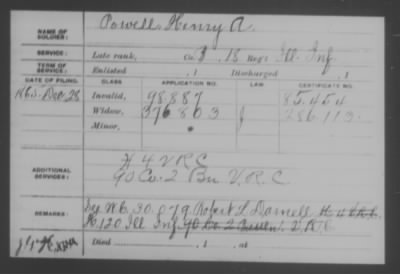 NAME OF SOLDIER: Powell, Henry A.
SERVICE: Late rank, Co. I, 18 Reg't Ill. Inf
TERM OF SERVICE: Enlisted , 1 Discharged , 1
DATE OF FILING. CLASS. APPLICATION NO. LAW. CERTIFICATE NO.
1865 Dec. 28 Invalid, 98.887 85.454
Widow, 376803 286.113
Minor,
ADDITIONAL SERVICES: H 4 V R C
90 Co. 2 Bn V. R. C
REMARKS: See Wc. 30.079 Robert L. Darnell H 4 V.R.C.
K 120 Ill Inf. 90 Co. 2 V. R. C
Died , 1 , at